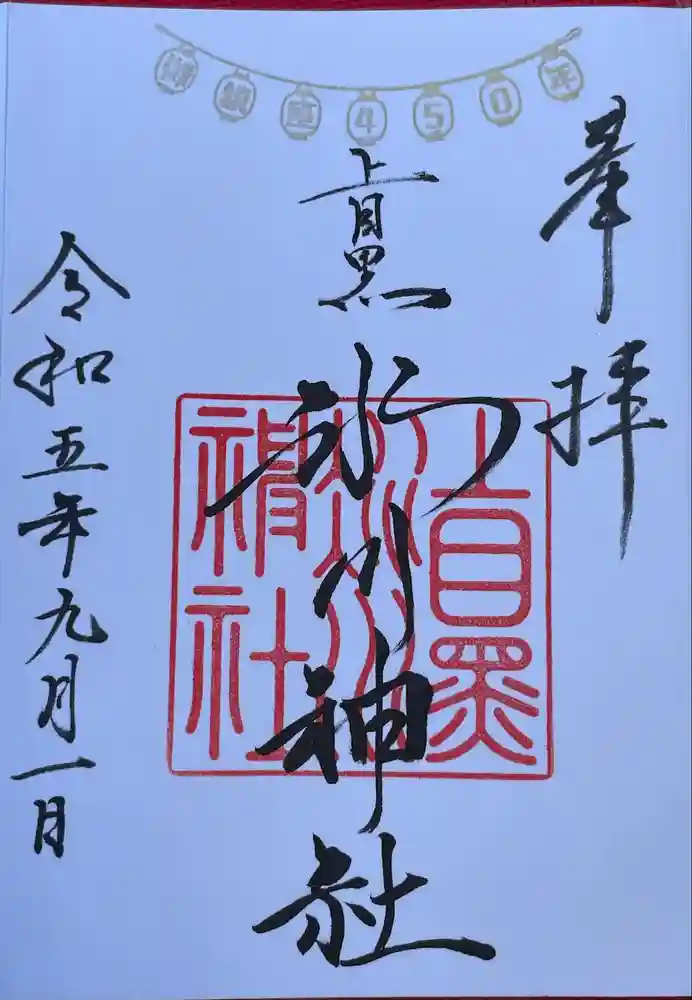 御鎮座450年
奉拝
上目黒
氷川神社
上目黒氷川神社
令和五年九月一日